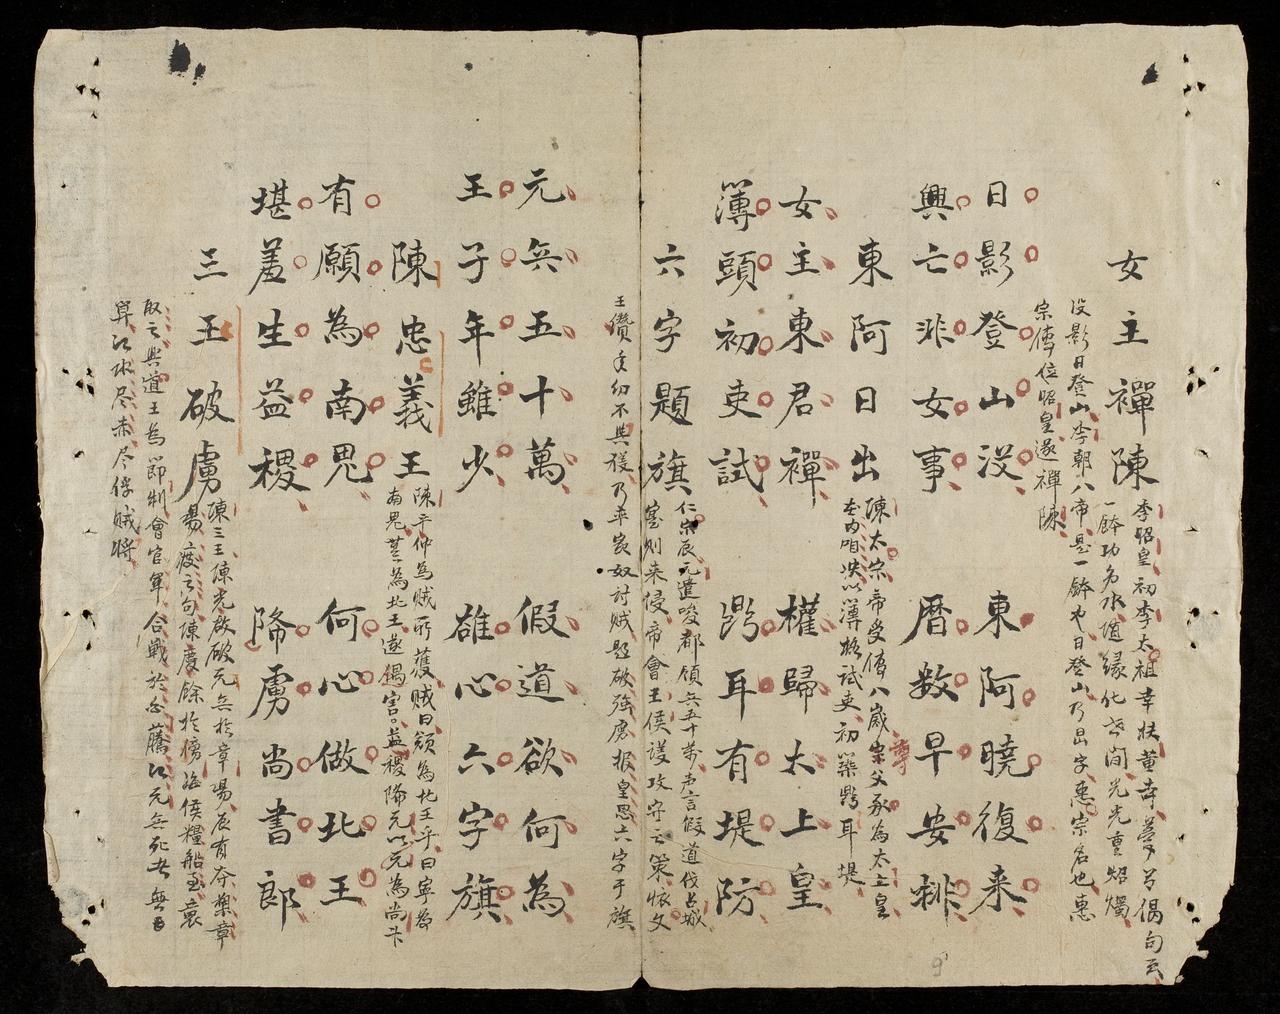 女主禪陳
李昭皇初李太祖幸扶董寺夢有偈句云
一鉢功名水道緣化世間光光重炤燭
没影日登山李朝八帝是一鉢也日登山乃昷字惠宗名也惠
宗傳位昭皇遂禪陳
日影登山没 東阿曉復来
興亡非女事 曆数早安排
東阿日出
陳太宗帝受傳八歲尊宗父承為太上皇
在内咱決以薄格試吏初築鼎耳堤
女主東君禪 權歸太上皇
薄頭初吏試 鼎耳有堤防
六字題旗
仁宗辰元遣唆都領兵五十萬声言假道伐占城
寔則来侵帝會王侯議攻守之策懷文
王儹年幼不與獲乃率家奴討賊題破強虜报皇恩六字于旗
元兵五十萬 假道欲何為
王子年雖少 雄心六字旗
陳忠義王
陳平仲為賊所獲賊曰願為北王乎曰寧為
南鬼莫為北王遂遇害益稷降元以元為尚书
有願為南鬼 何心做北王
堪羞生益稷 降虜尚書郎
三王破虜
陳三王陳光啟破元兵於章陽辰有夺槊章
易渡之句陳慶餘於傍海侯糧船至襲
取之興道王為節制會官軍合戰於白藤江元兵死者無
算江水尽赤尽俘賊将